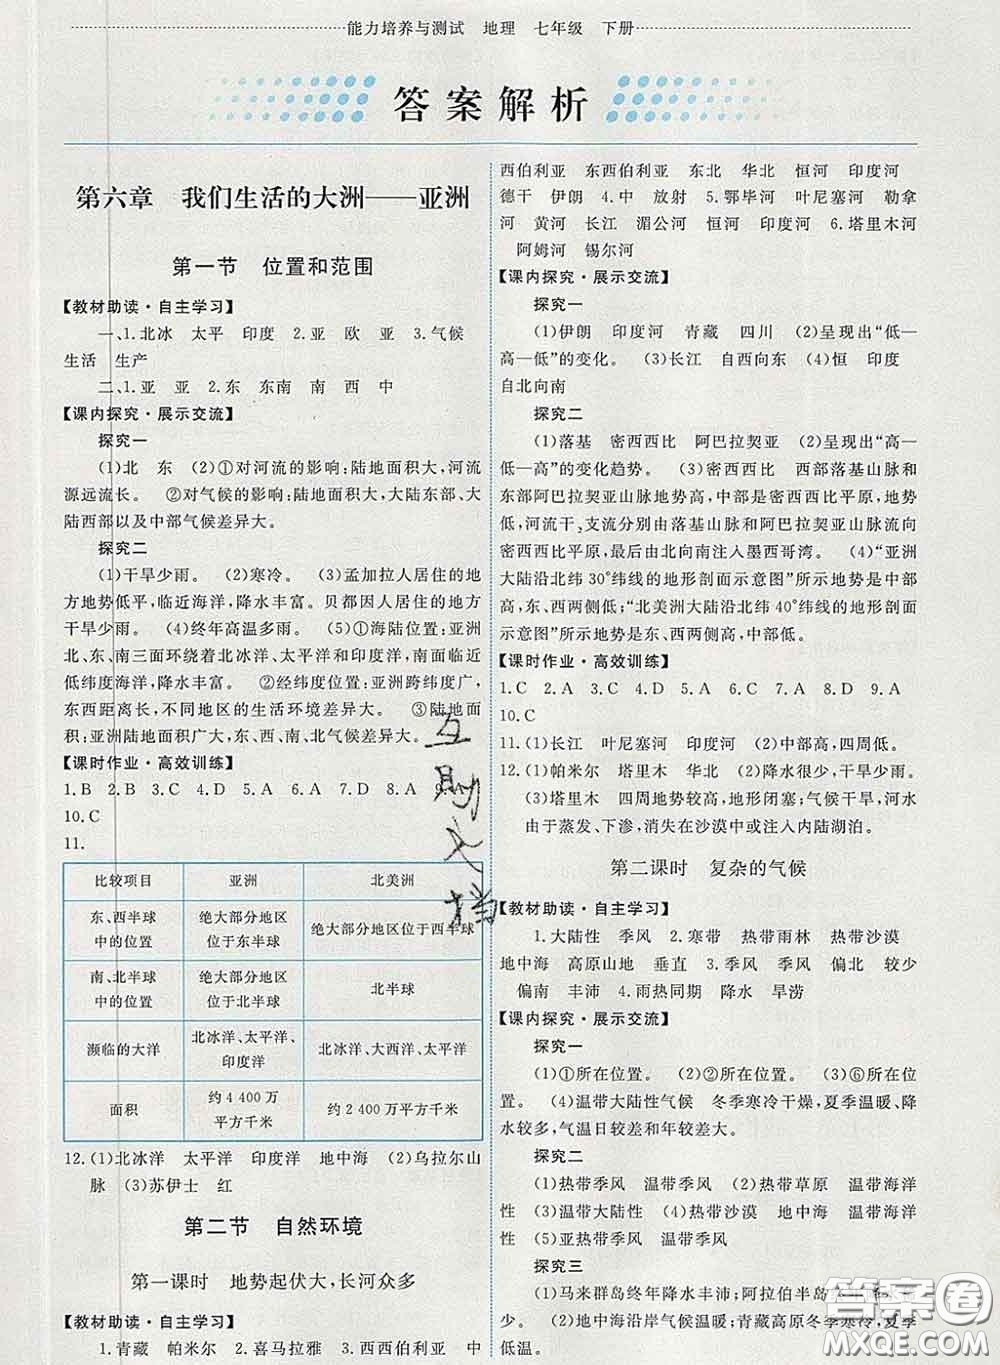 能力培养与测试　地理　七年级　下册
答案解析
第六章　我们生活的大洲——亚洲
第一节　位置和范围
【教材助读·自主学习】
一、1.北冰　太平　印度　2.亚　欧　亚　3.气候
生活　生产
二、1.亚　亚　2.东　东南　南　西　中
【课内探究·展示交流】
探究一
(1)北　东　(2)①对河流的影响:陆地面积大,河流
源远流长。　②对气候的影响:陆地面积大,大陆东部、大
陆西部以及中部气候差异大。
探究二
(1)干旱少雨。　(2)寒冷。　(3)孟加拉人居住的地
方地势低平,临近海洋,降水丰富。贝都因人居住的地方
干旱少雨。　(4)终年高温多雨。　(5)①海陆位置:亚洲
北、东、南三面环绕着北冰洋、太平洋和印度洋,南面临近
低纬度海洋,降水丰富。　②经纬度位置:亚洲跨纬度广,
东西距离长,不同地区的生活环境差异大。　③陆地面
积:亚洲陆地面积广大,东、西、南、北气候差异大。
【课时作业·高效训练】
1.B　2.B　3.C　4.D　5.A　6.A　7.D　8.A　9.
10.C
11.
比较项目　亚洲　北美洲
东、西半球　绝大部分地区　绝大部分地区位于西半球
中的位置　位于东半球
南、北半球　绝大部分地区　北半球
中的位置　位于北半球
濒临的大洋　北冰洋、太平洋、　北冰洋、大西洋、太平洋
印度洋
面积　约4 400万　约2 400万平方千米
平方千米
12.(1)北冰洋　太平洋　印度洋　地中海　(2)乌拉尔山
脉　(3)苏伊士　红
第二节　自然环境
第一课时　地势起伏大,长河众多
【教材助读·自主学习】
1.青藏　帕米尔　2.喜马拉雅　3.西西伯利亚　中
西伯利亚　东西伯利亚　东北　华北　恒河　印度河
德干　伊朗　4.中　放射　5.鄂毕河　叶尼塞河　勒拿
河　黄河　长江　湄公河　恒河　印度河　6.塔里木河
阿姆河　锡尔河
【课内探究·展示交流】
探究一
(1)伊朗　印度河　青藏　四川　(2)呈现出“低—
高—低”的变化。　(3)长江　自西向东　(4)恒　印度
自北向南
探究二
(1)落基　密西西比　阿巴拉契亚　(2)呈现出“高—
低—高”的变化趋势。　(3)密西西比　西部落基山脉和
东部阿巴拉契亚山脉地势高,中部是密西西比平原,地势
低,河流干、支流分别由落基山脉和阿巴拉契亚山脉流向
密西西比平原,最后由北向南注入墨西哥湾。　(4)“亚洲
大陆沿北纬30°纬线的地形剖面示意图”所示地势是中部
高,东、西两侧低;“北美洲大陆沿北纬40°纬线的地形剖面
示意图”所示地势是东、西两侧高,中部低。
【课时作业·高效训练】
1.C　2.A　3.C　4.D　5.A　6.A　7.D　8.D　9.A
10.C
11.(1)长江　叶尼塞河　印度河　(2)中部高,四周低。
12.(1)帕米尔　塔里木　华北　(2)降水很少,干旱少雨。
(3)塔里木　四周地势较高,地形闭塞;气候干旱,河水
由于蒸发、下渗,消失在沙漠中或注入内陆湖泊。
第二课时　复杂的气候
【教材助读·自主学习】
1.大陆性　季风　2.寒带　热带雨林　热带沙漠
地中海　高原山地　垂直　3.季风　季风　偏北　较少
偏南　丰沛　4.雨热同期　降水　旱涝
【课内探究·展示交流】
探究一
(1)①所在位置。　(2)②所在位置。　(3)⑥所在位置。
(4)温带大陆性气候　冬季寒冷干燥,夏季温暖、降
水较多,气温日较差和年较差大。
探究二
(1)热带季风　温带季风　(2)热带草原　温带海洋
性　(3)温带大陆性　(4)热带沙漠　地中海　温带海洋
性　(5)亚热带季风　温带季风
探究三
(1)马来群岛终年降水丰沛;阿拉伯半岛
少。　(2)大陆东部沿岸气候冬季低温少雨,夏季高温
多雨